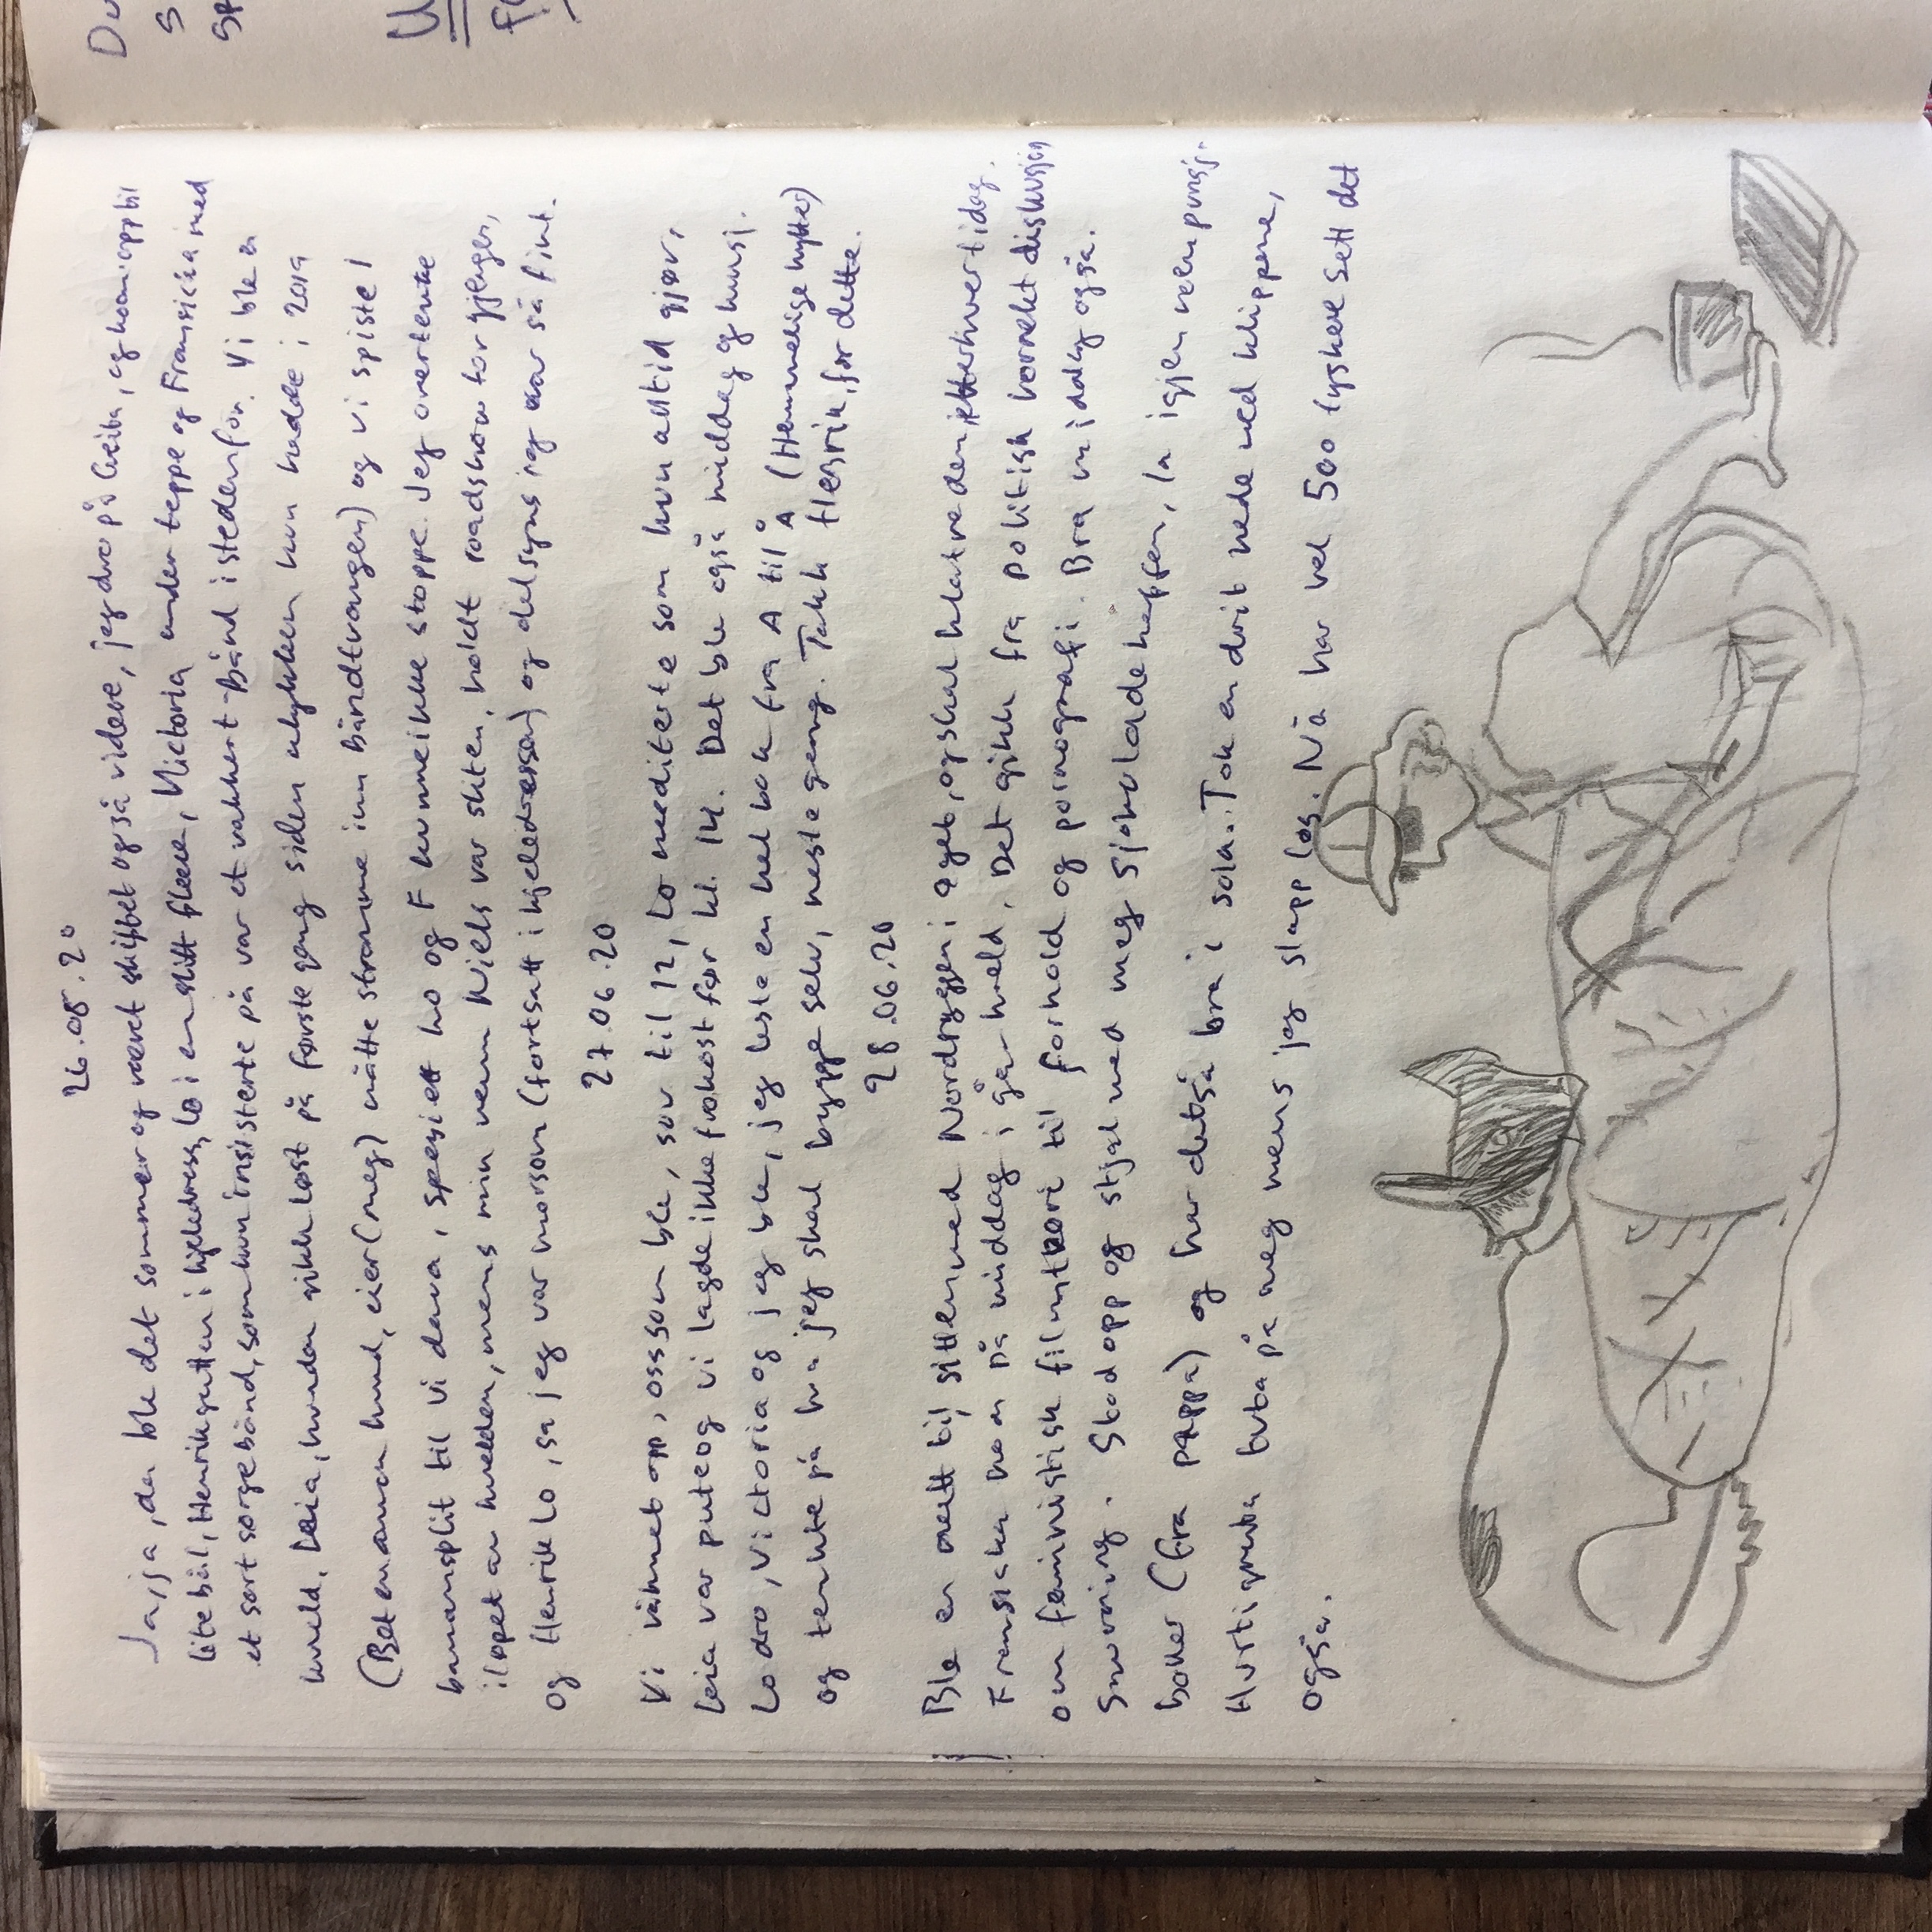 26.08.20
Ja, ja, da ble det sommer og været skiftet også videre, jeg dro på Leika, og kom opp til
lite bål, Henrikgutten i kjeledress, Lo i en slitt fleece, Victoria under teppe og Fransiska med
et sort sørgebånd, som hun insisterte på var et vakkert-bånd i stedenfor. Vi ble en
kveld. Leia, hunden gikk løst på første gang siden ulykken hun hadde i 2019
(Bet en annen hund, eier (meg) måtte stramme inn båndtvangen) og vi spiste 1
bananasplit til vi daua, spesielt Lo og F kunne ikke stoppe. Jeg overtente
i løpet av kvelden, mens min venn Niels var sliten, holdt roadshow for gjengen,
og Henrik lo, sa jeg var morsom (fortsatt i kjeledressen) og da synes jeg var så fint.
27.06.20
Vi våknet opp, oss som ble, sov til 12, Lo mediterte som hun alltid gjør,
Leia var pute og vi lagde ikke frokost før kl. 14. Det ble også middag og hursj.
Lo dro, Victoria og jeg ble, jeg leste en hel bok fra A til Å (Hemmelige hytter)
og tenkte på hva jeg skal bygge selv, neste gang. Takk flesrik, for dette.
28.06.20
Ble en natt til sittemed Nordryggen i eget, og skal klatre den etterhvert idag.
Fransiska kom på middag i går kveld. Det gikk fra politisk korrekt diskusjon
om feministisk filmteori til forhold og pornografi. Bra middag også.
Snørring. Stod opp og stjal med meg sjokoladekaffen, la igjen veenpunsj-
boller (fra pappa) og har det så bra i sola. Tok en drit nede ved klippene,
Hurtigruta tuta på meg mens jeg slapp løs. Nå har vel 500 tyskere sett det
også.